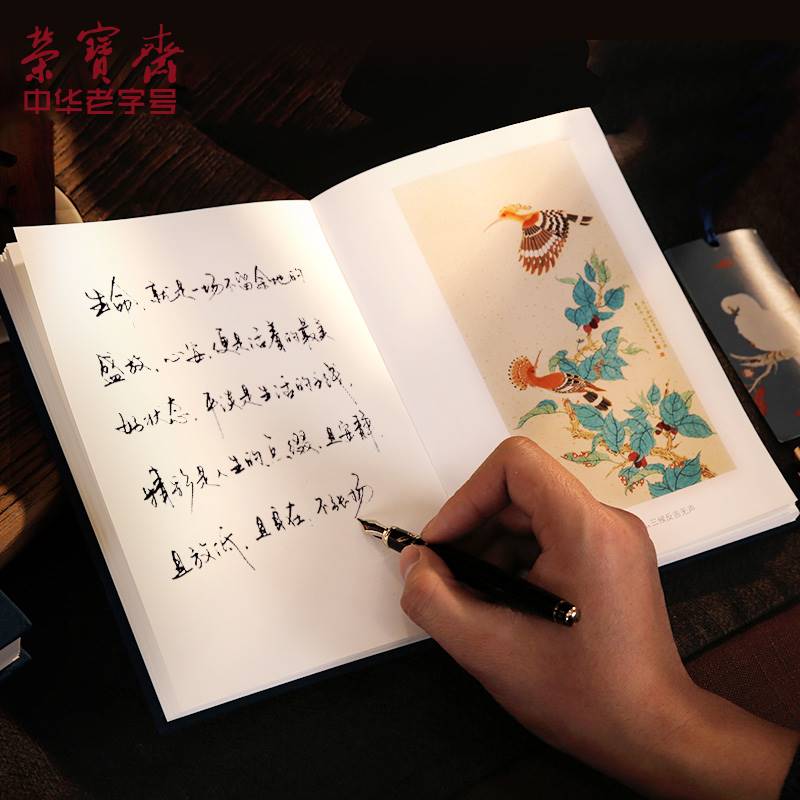 荣宝斋
中华老字号
生命，就是一场不留余地的
盛放，心安，便是活着的最美
好状态，平淡是生活的
精彩是人生的点缀，且安静
且放低，且自在，不
三候反舌无声